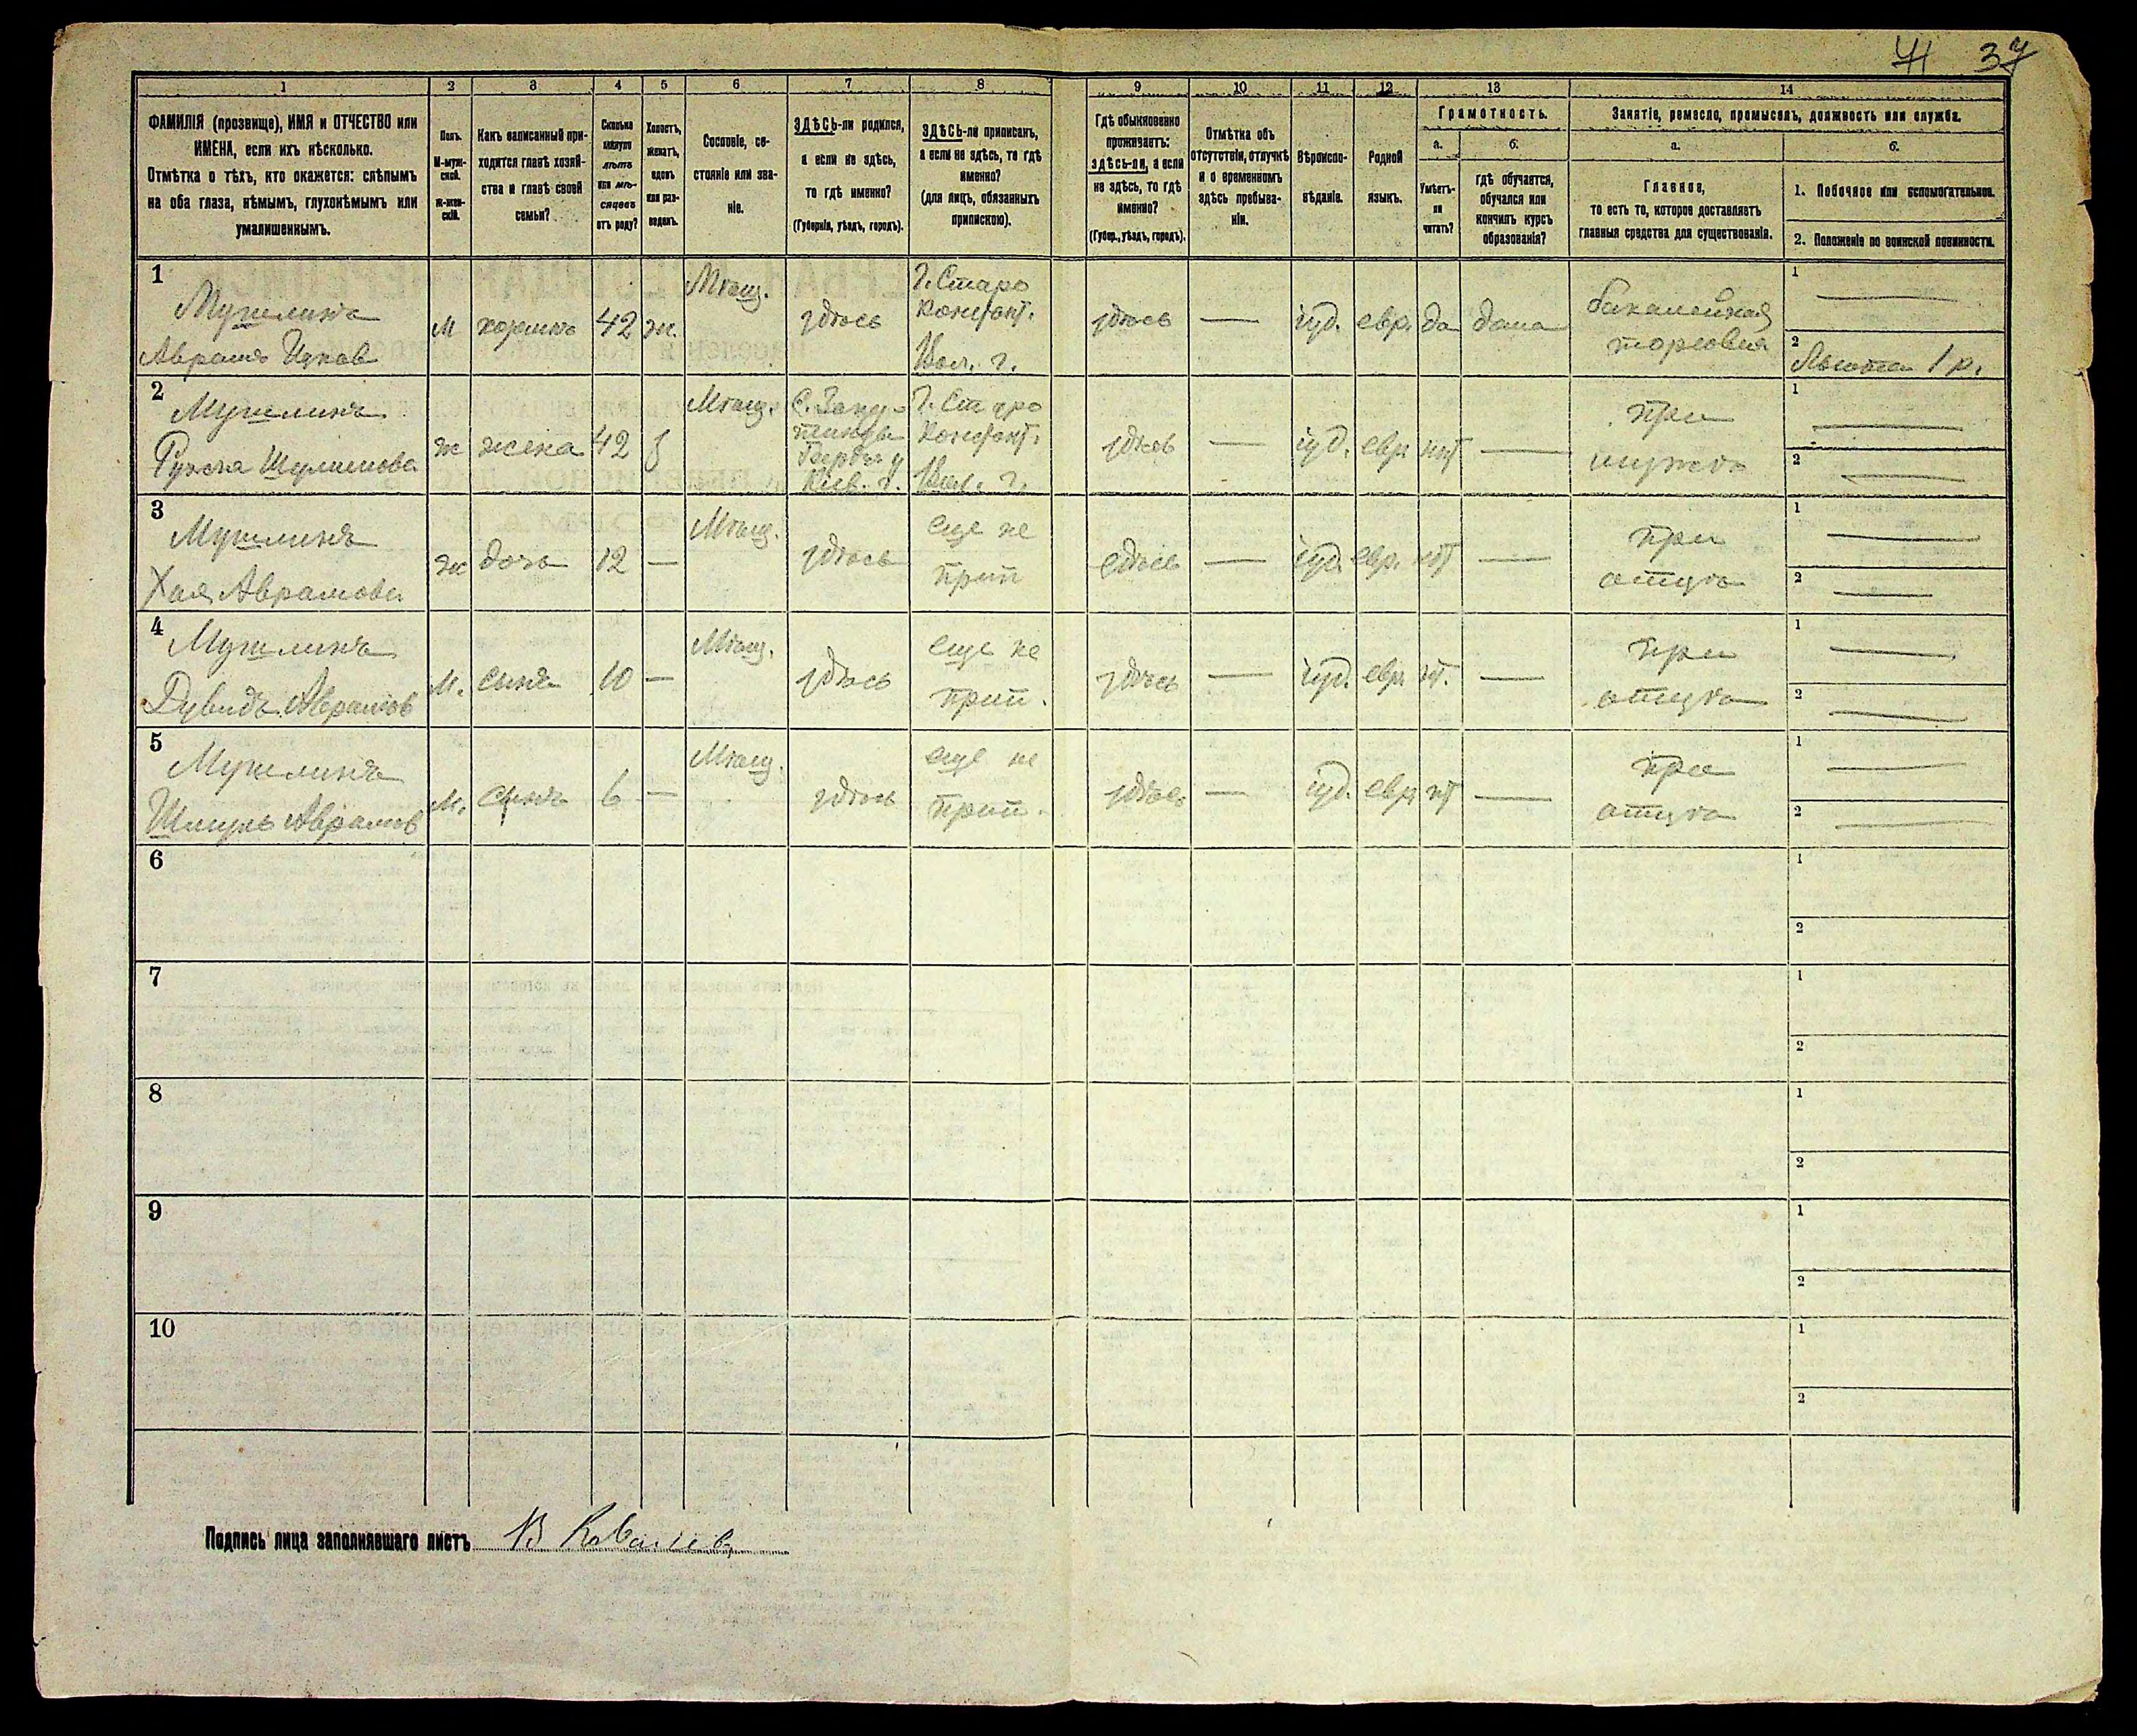 41 37
1
2
3
4
5
6
7
8
9
10
11
12
13
14
ФАМИЛІЯ (прозвище), ИМЯ и ОТЧЕСТВО или
ИМЕНА, если ихъ нѣсколько.
Отмѣтка о тѣхъ, кто окажется: слѣпымъ
на оба глаза, нѣмымъ, глухонѣмымъ или
умалишеннымъ.
Полъ.
М-муж-
ской.
Ж-жен-
скій.
Какъ записанный при-
ходится главѣ хозяй-
ства и главѣ своей
семьи?
Сколько
минуло
лѣтъ
или мѣ-
сяцевъ
отъ роду?
Холостъ,
женатъ,
вдовъ
или раз-
веденъ.
Сословіе, со-
стояніе или зва-
ніе.
ЗДѢСЬ-ли родился,
а если не здѣсь,
то гдѣ именно?
(Губернія, уѣздъ, городъ).
ЗДѢСЬ-ли приписанъ,
а если не здѣсь, то гдѣ
именно?
(для лицъ, обязанныхъ
припискою).
Гдѣ обыкновенно
проживаетъ:
здѣсь-ли, а если
не здѣсь, то гдѣ
именно?
(Губер., уѣздъ, городъ).
Отмѣтка объ
отсутствіи, отлучкѣ
и о временномъ
здѣсь пребыва-
ніи.
Вѣроиспо-
вѣданіе.
Родной
языкъ.
Грамотность.
а.
б.
Умѣетъ-
ли
читать?
гдѣ обучается,
обучался или
кончилъ курсъ
образованія?
Занятіе, ремесло, промыселъ, должность или служба.
а.
б.
Главное,
то есть то, которое доставляетъ
главныя средства для существованія.
1. Побочное или вспомогательное.
2. Положеніе по воинской повинности.
1
Мушлинъ
Аврамъ Ицков
М
хозяинъ
42
ж.
Мѣщ.
здѣсь
Г. Старо
Конст.
Вол. г.
здѣсь
—
іуд.
евр.
да
дома
бакалейная
торговля
1 —
2 Льгота 1 р.
2
Мушлинъ
Шулимова
ж
жена
42
з
Мѣщ.
Кіев. г.
Г. Старо
Конст.
Вол. г.
здѣсь
—
іуд.
евр.
нѣт
—
при
мужѣ
1 —
2 —
3
Мушлинъ
Хая Аврамова
ж
дочь
12
—
Мѣщ.
здѣсь
еще не
прип
здѣсь
—
іуд.
евр.
нѣт
—
при
отцѣ
1 —
2 —
4
Мушлинъ
Дувидъ Аврамов
М.
сынъ
10
—
Мѣщ.
здѣсь
еще не
прип.
здѣсь
—
іуд.
евр.
нѣт.
—
при
отцѣ
1 —
2 —
5
Мушлинъ
Шмуль Аврамов
М.
сынъ
6
—
Мѣщ.
здѣсь
еще не
прип.
здѣсь
—
іуд.
евр.
нѣт
—
при
отцѣ
1 —
2 —
6
1
2
7
1
2
8
1
2
9
1
2
10
1
2
Подпись лица заполнявшаго листъ В Ковалевъ